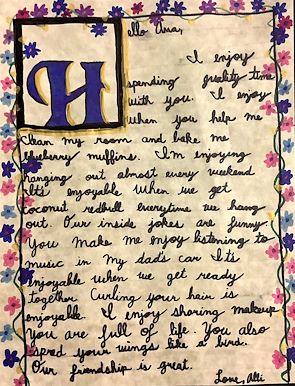 Hello Ana,
I enjoy
spending quality time
with you. I enjoy
when you help me
clean my room and bake me
blueberry muffins. I'm enjoying
hanging out almost every weekend
It's enjoyable when we get
coconut redbull everytime we hang
out. Our inside jokes are funny.
You make me enjoy listening to
music in my dad's car It's
enjoyable when we get ready
together Curling your hair is
enjoyable. I enjoy sharing makeup
You are full of life. You also
spred your wings like a bird.
Our friendship is great.
Love, Alli